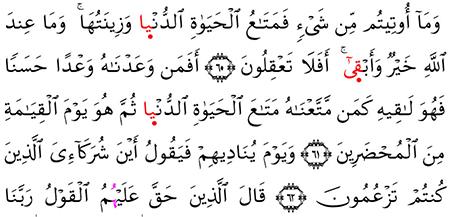 وَمَآ أُوتِيتُم مِّن شَىْءٍ فَمَتَـٰعُ ٱلْحَيَوٰةِ ٱلدُّنْيَا وَزِينَتُهَا ۚ وَمَا عِندَ
ٱللَّهِ خَيْرٌ وَأَبْقَىٰٓ ۚ أَفَلَا تَعْقِلُونَ ﴿٦٠﴾ أَفَمَن وَعَدْنَـٰهُ وَعْدًا حَسَنًا
فَهُوَ لَـٰقِيهِ كَمَن مَّتَّعْنَـٰهُ مَتَـٰعَ ٱلْحَيَوٰةِ ٱلدُّنْيَا ثُمَّ هُوَ يَوْمَ ٱلْقِيَـٰمَةِ
مِنَ ٱلْمُحْضَرِينَ ﴿٦١﴾ وَيَوْمَ يُنَادِيهِمْ فَيَقُولُ أَيْنَ شُرَكَآءِىَ ٱلَّذِينَ
كُنتُمْ تَزْعُمُونَ ﴿٦٢﴾ قَالَ ٱلَّذِينَ حَقَّ عَلَيْهُمُ ٱلْقَوْلُ رَبَّنَا